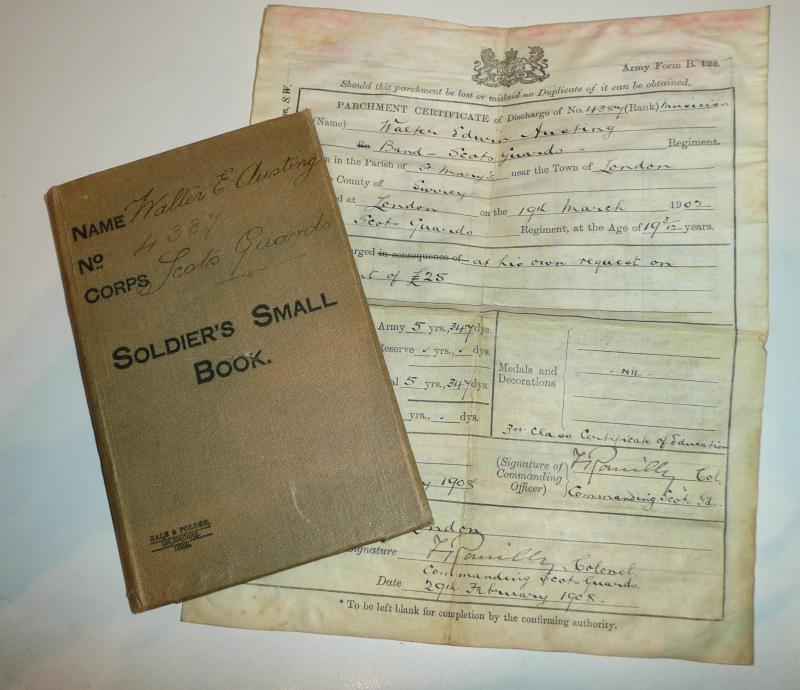 NAME Walter E Austing
No 4387
CORPS Scots Guards
SOLDIER'S SMALL
BOOK.
GALE & POLDEN,
Army Form B. 128.
Should this parchment be lost or mislaid no Duplicate of it can be obtained.
PARCHMENT CERTIFICATE of Discharge of No. 4387 (Rank) Musician
(Name) Walter Edwin Austing
Band - Scots Guards - Regiment.
in the Parish of St Mary's near the Town of London
County of Surrey
at London on the 19th March 1902
Scots Guards Regiment, at the Age of 19 3/12 years.
in consequence of at his own request on
of £25
Army 5 yrs., 347 dys.
Reserve . yrs., . dys.
5 yrs., 347 dys.
yrs., . dys.
Medals and
Decorations
- Nil -
3rd Class Certificate of Education
(Signature of
Commanding
Officer)
F Romilly Col.
Commanding Scots Gds.
1908
London
Signature F Romilly, Colonel.
Commanding Scots Guards.
Date 29th February 1908.
* To be left blank for completion by the confirming authority.